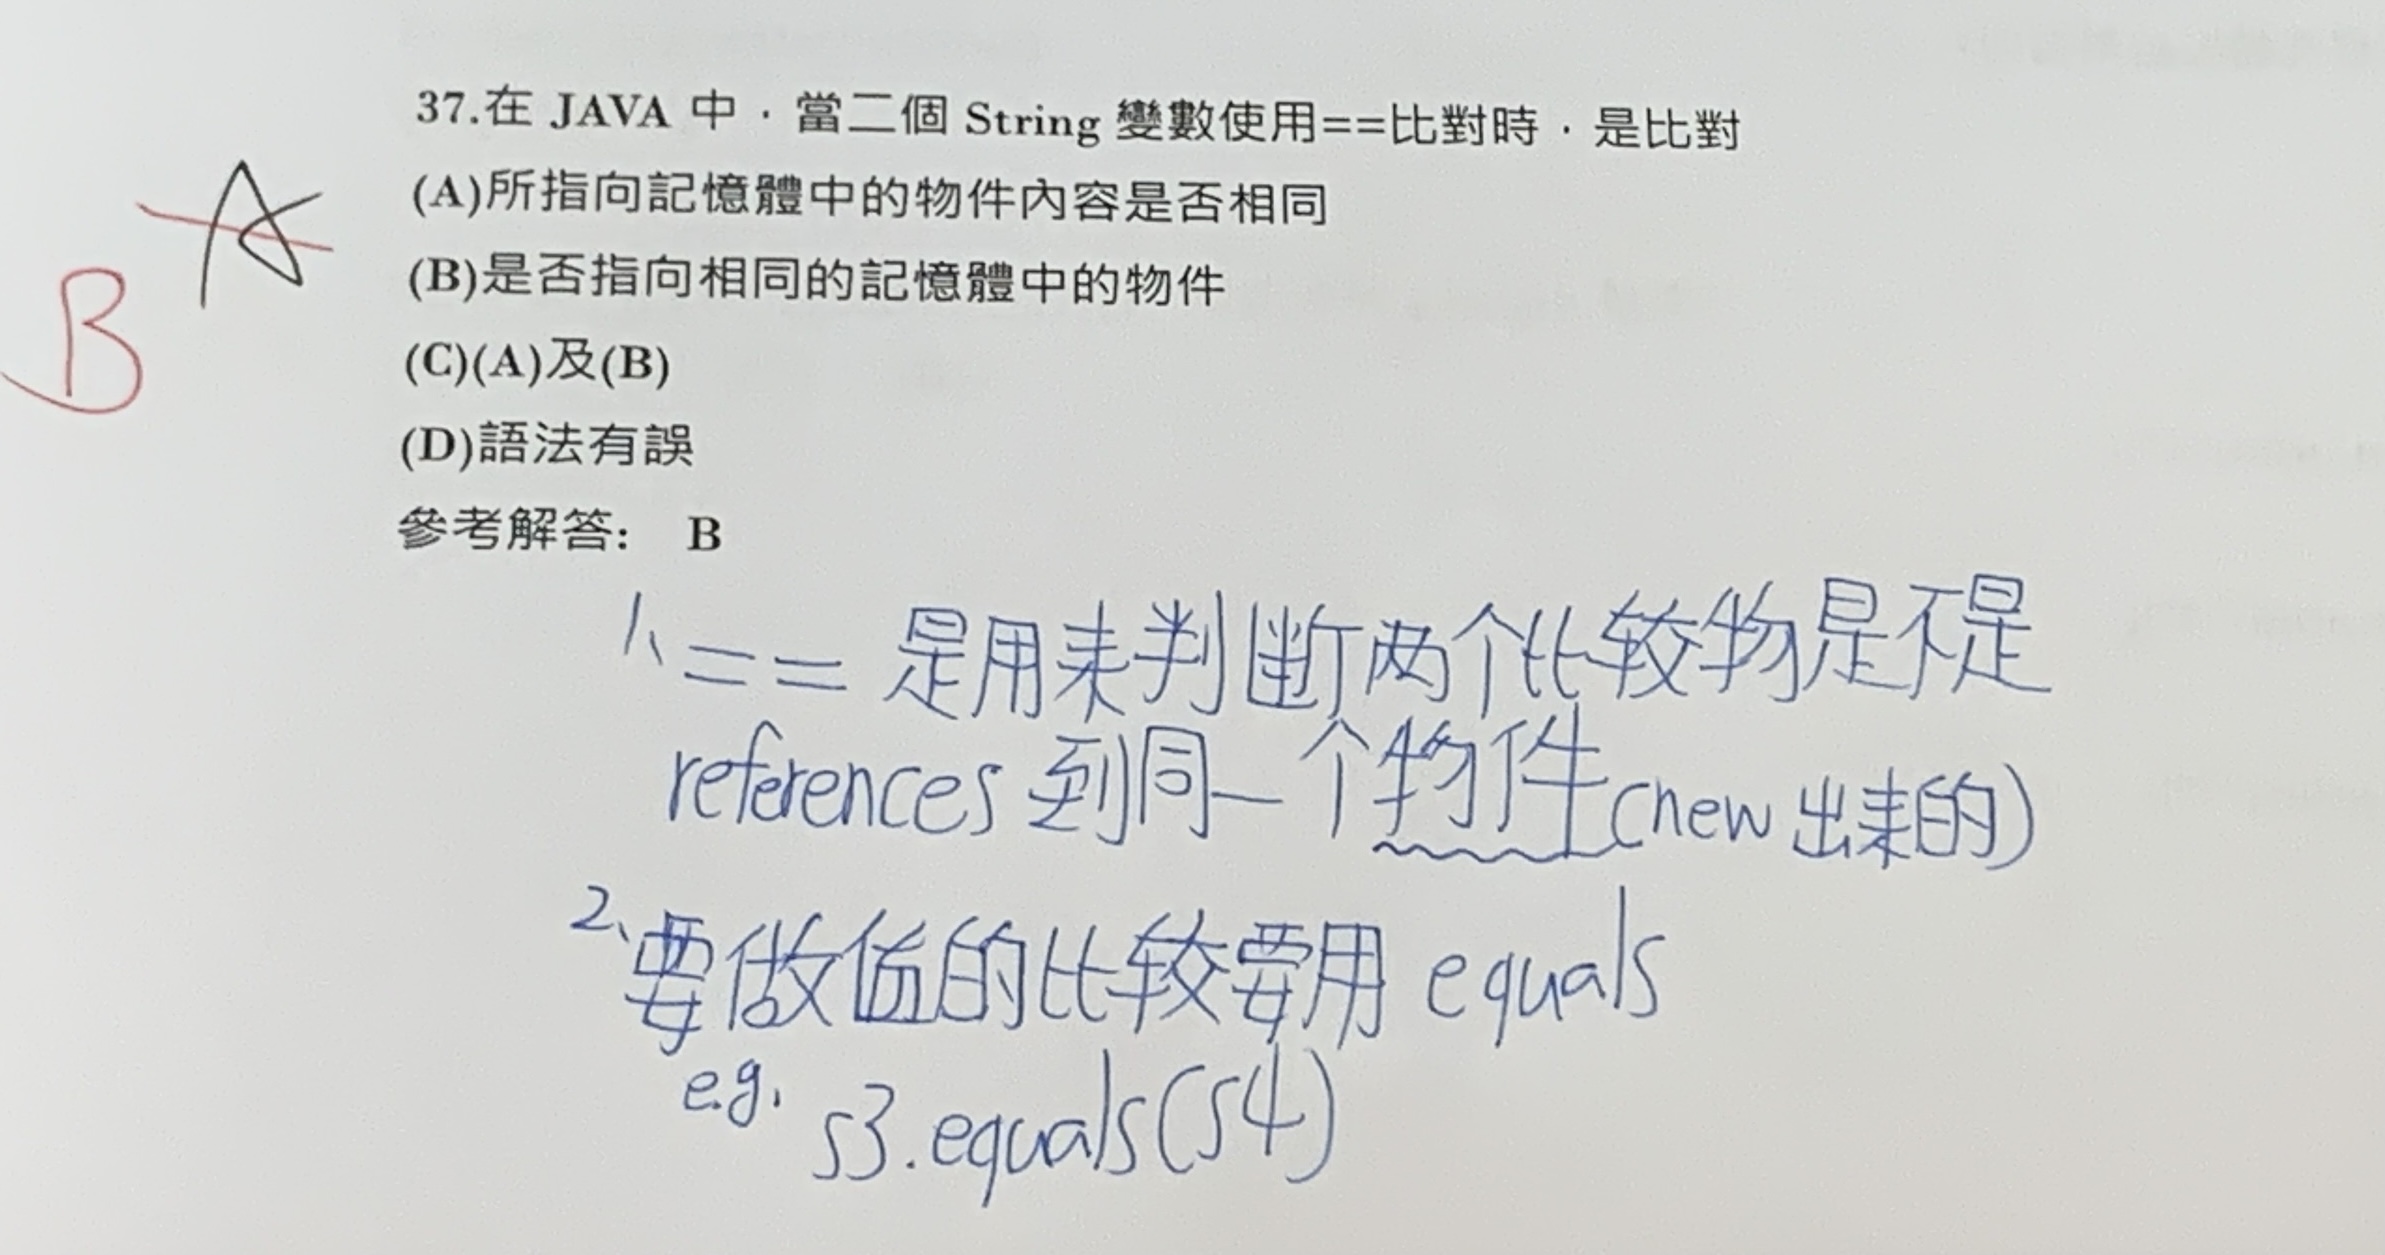 37.在 JAVA 中，當二個 String 變數使用==比對時，是比對
A
(A)所指向記憶體中的物件內容是否相同
B
(B)是否指向相同的記憶體中的物件
(C)(A)及(B)
(D)語法有誤
參考解答: B
1、== 是用来判断两个比较物是不是
references 到同一个物件(new 出来的)
2、要做值的比较要用 equals
e.g. s3.equals(s4)